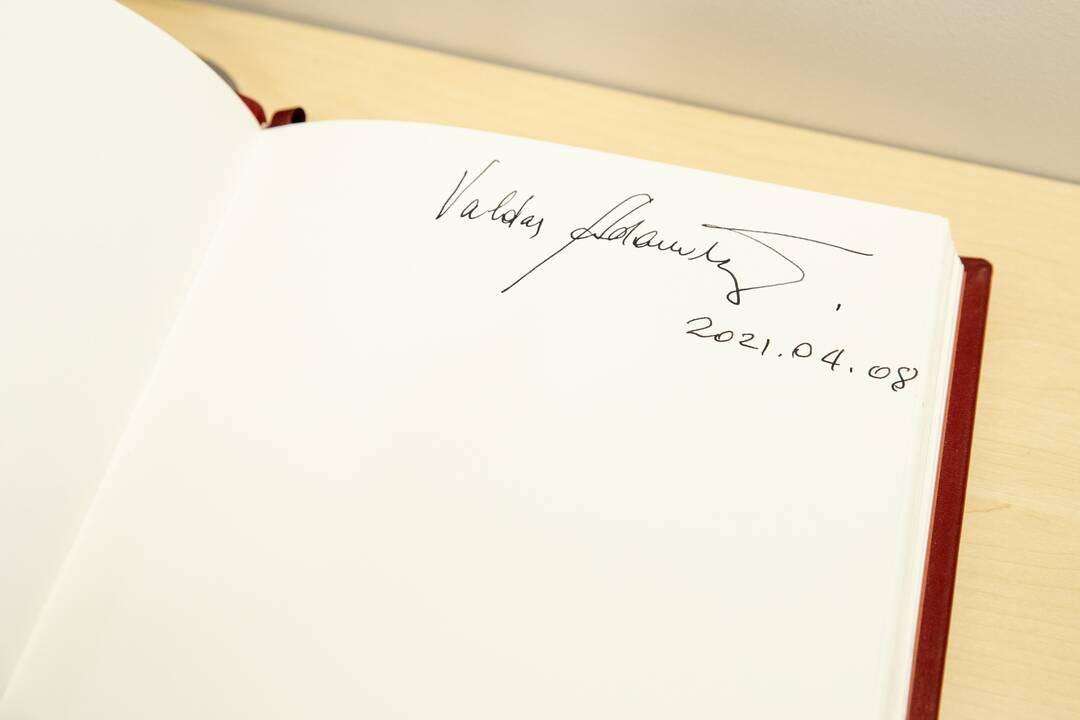 Valdas Adamkus
2021.04.08